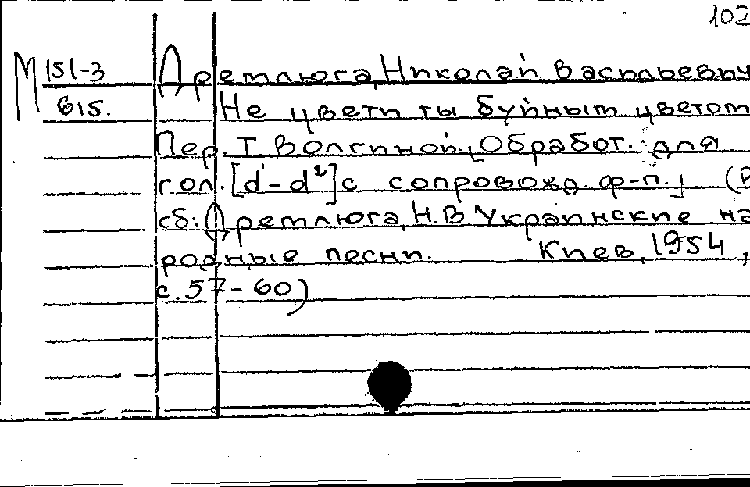 102
М 151-3 Дремлюга, Николай Васильевич
615. Не цвети ты буйным цветом
Пер. Т. Волгиной. [Обработ. для
гол. [d'-d²] с сопровожд. ф-п.] (В
сб: Дремлюга, Н.В. Украинские на-
родные песни. Киев, 1954,
с. 57-60)